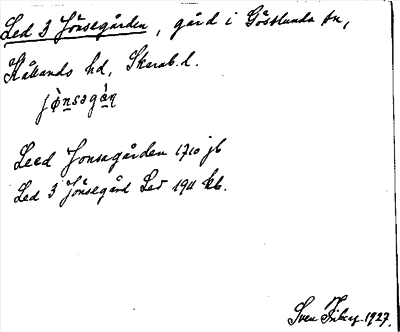 Led 3 Jönsegården, gård i Gösslunda sn,
Kållands hd, Skarab. l.
jö̀nsəgàn
Leed Jonsagården 1710 jb
Led 3 Jönsegård Led 1911 kb.
Sven Friberg 1927.